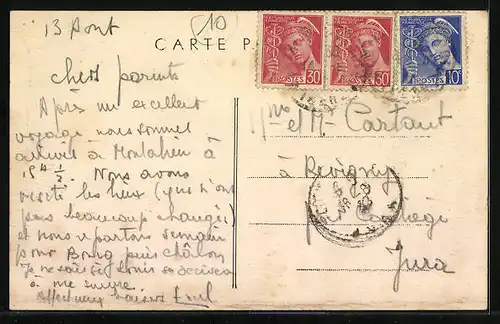 13 Août
(10)
CARTE P
RÉPUBLIQUE FRANÇAISE
30 POSTES
RÉPUBLIQUE FRANÇAISE
30 POSTES
RÉPUBLIQUE FRANÇAISE
POSTES 10
Chers parents
Après un excellent
voyage nous sommes
arrivés à Montalieu à
15h 1/2. Nous avons
visité les lieux (qui n'ont
pas beaucoup changés)
et nous repartons demain
pour Bourg puis Châlon
Je ne sais si Louis se décidera
à me suivre.
Affectueux baisers Emil
Mme et Mr Cartaut
à Revigny
par
Jura